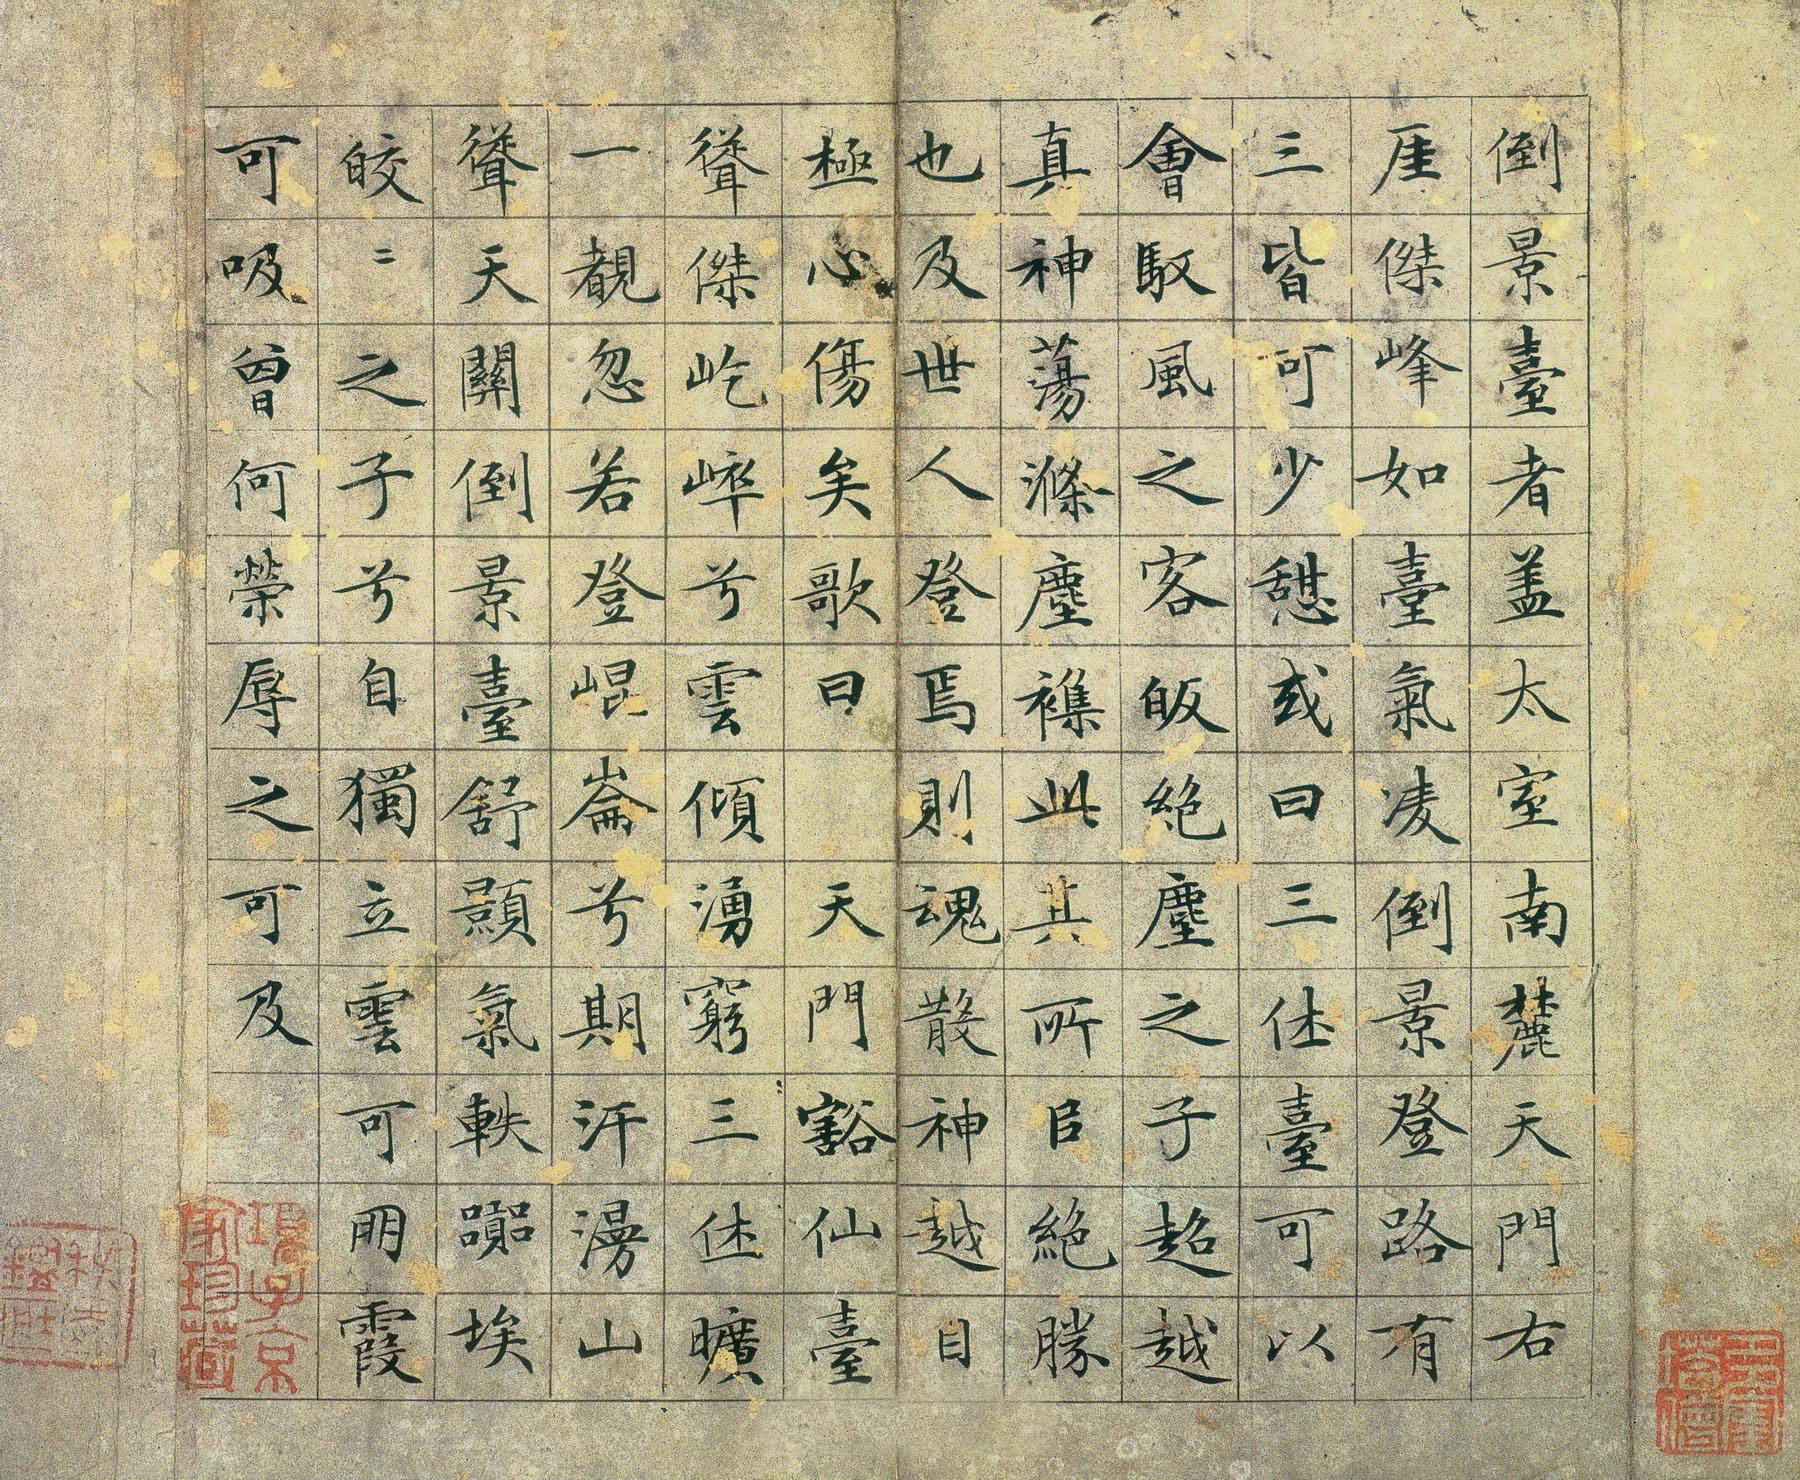 倒景臺者盖太室南麓天門右
厓傑峰如臺氣凌倒景登路有
三皆可少憩或曰三休臺可以
會馭風之客皈絕塵之子超越
真神蕩滌塵襟此其所㠯絕勝
也及世人登焉則魂散神越目
極心傷矣歌曰　天門豁仙臺
聳傑屹崒兮雲傾湧窮三休曠
一覩忽若登崐崙兮期汗漫山
聳天關倒景臺舒顥氣軼囂埃
皎〻之子兮自獨立雲可朋霞
可吸曾何榮辱之可及
項子京家珍藏